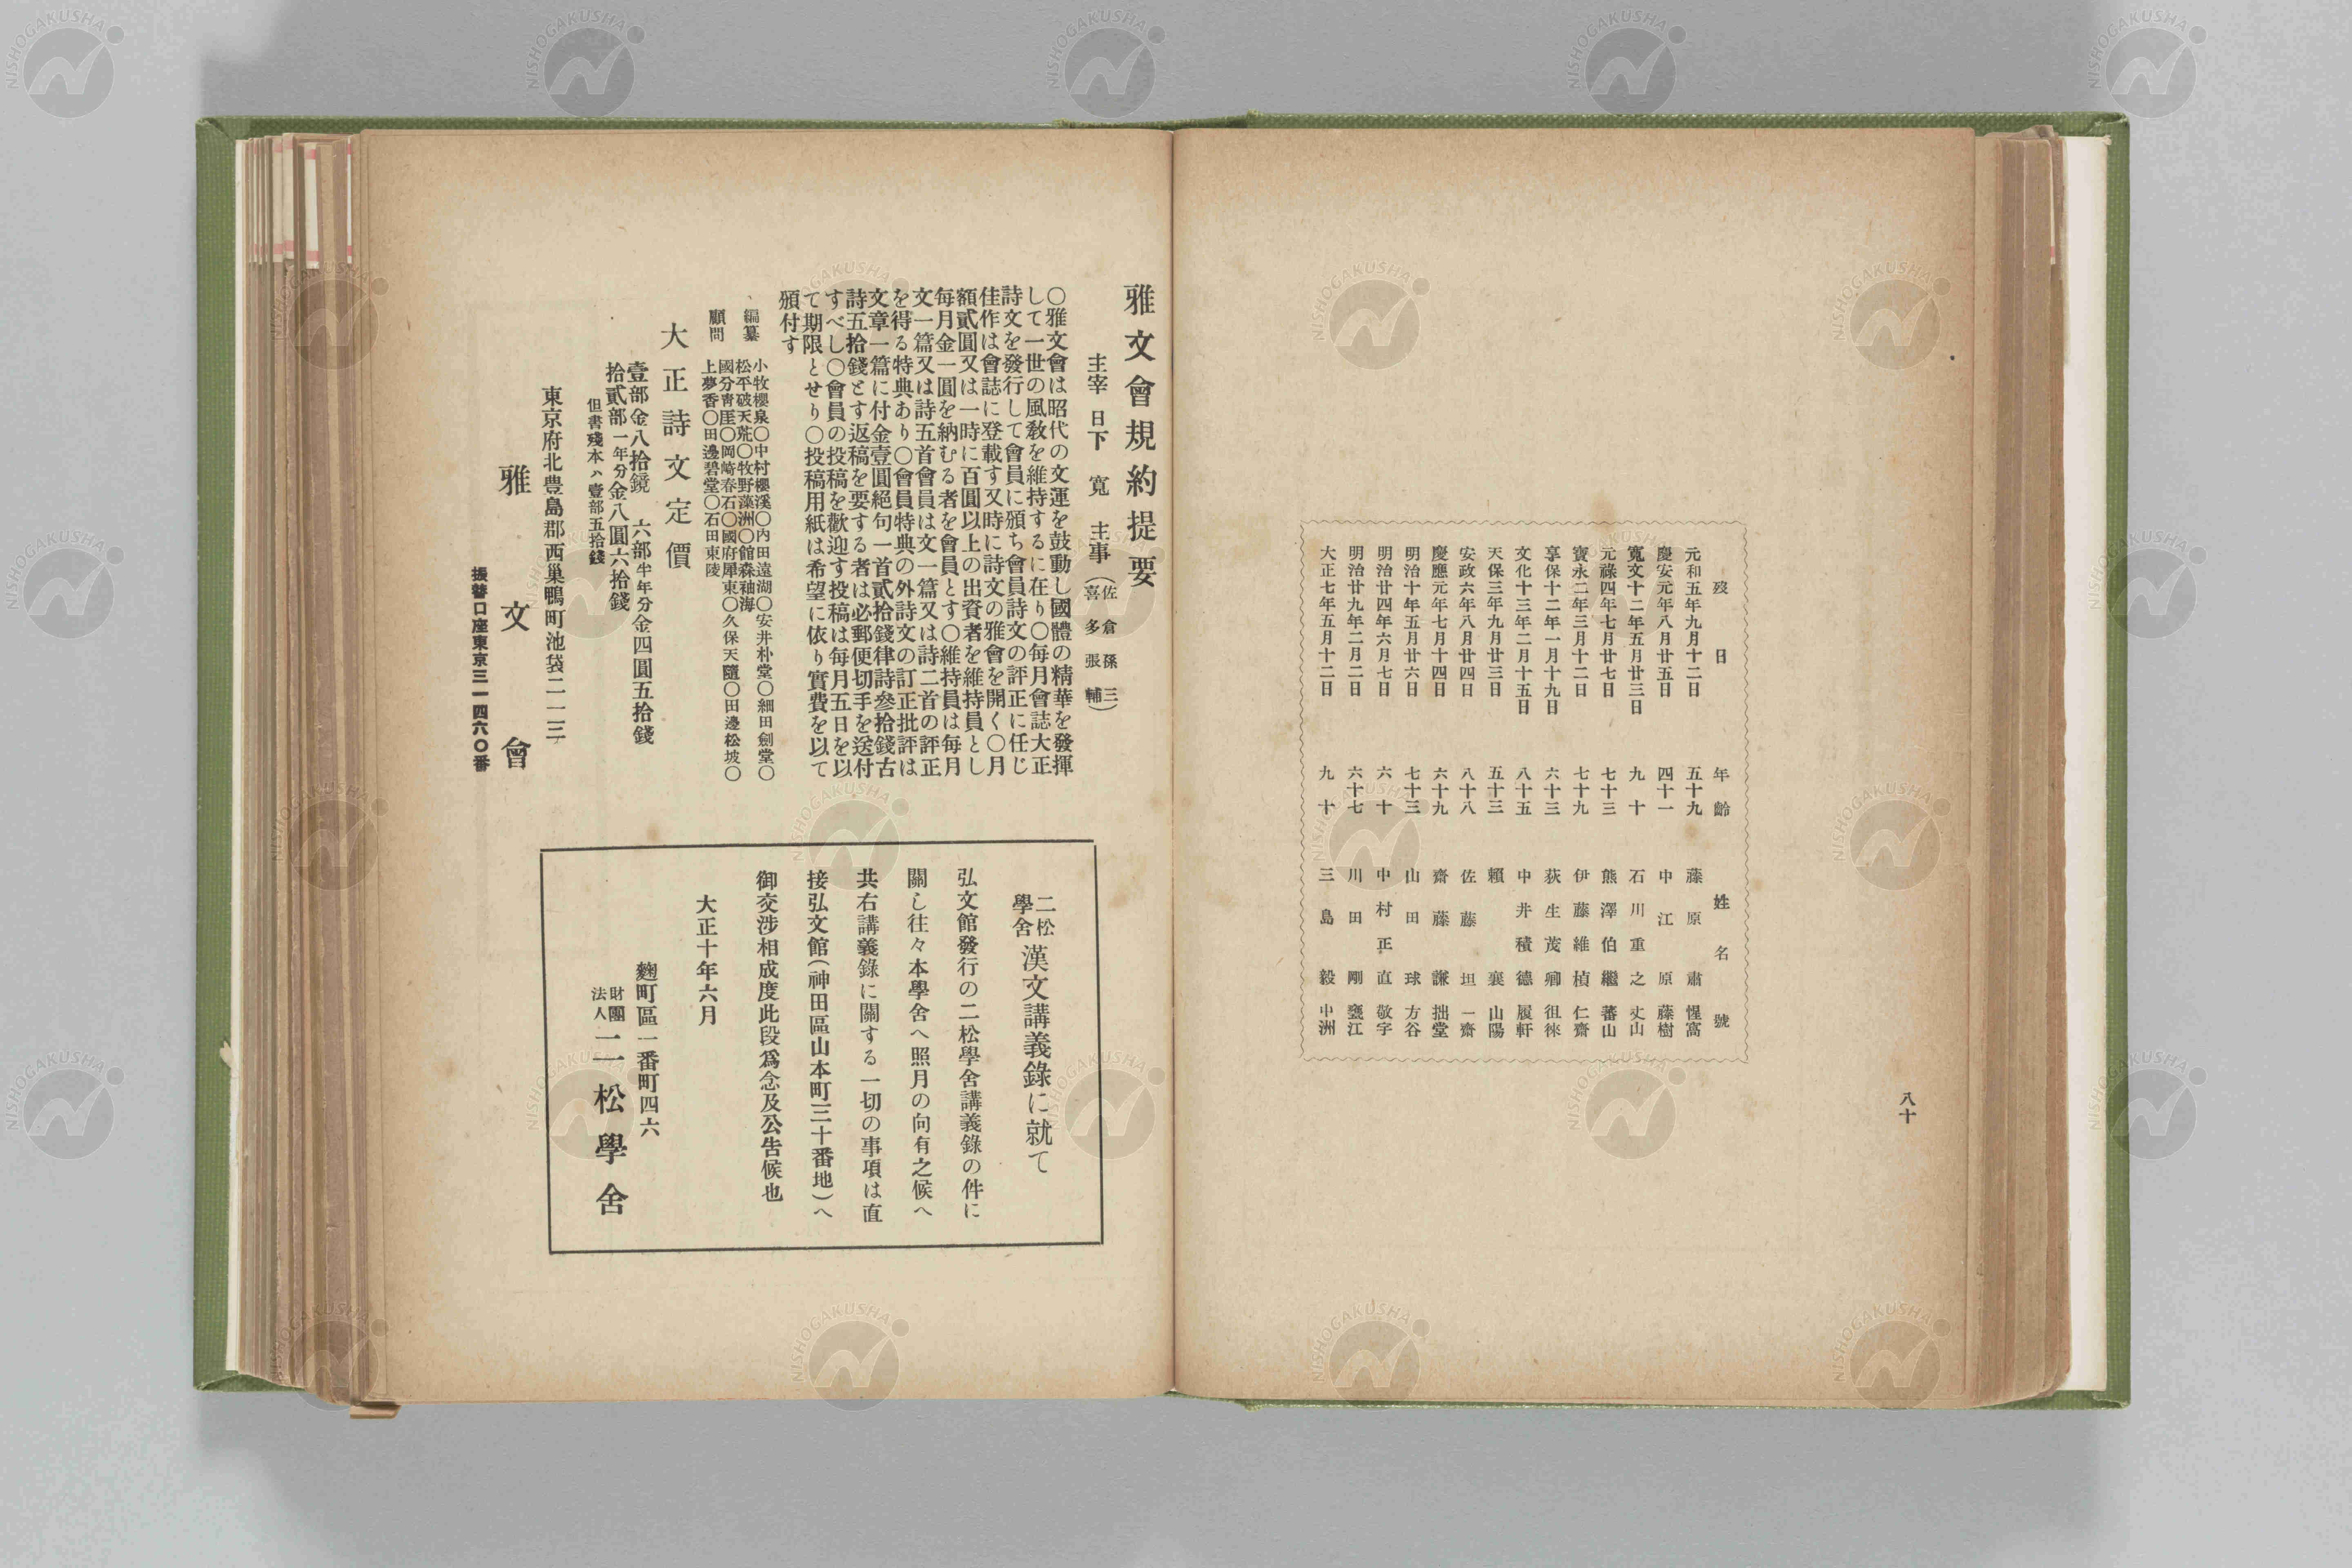 八十
歿日 年齡 姓名 號
元和五年九月十二日 五十九 藤原肅 惺窩
慶安元年八月廿五日 四十一 中江原 藤樹
寛文十二年五月廿三日 九十 石川重之 丈山
元祿四年七月廿七日 七十三 熊澤伯繼 蕃山
寶永二年三月十二日 七十九 伊藤維楨 仁齋
享保十二年一月十九日 六十三 荻生茂卿 徂徠
文化十三年二月十五日 八十五 中井積德 履軒
天保三年九月廿三日 五十三 賴襄 山陽
安政六年八月廿四日 八十八 佐藤坦 一齋
慶應元年七月十四日 六十九 齋藤謙 拙堂
明治十年五月廿六日 七十三 山田球 方谷
明治廿四年六月七日 六十 中村正直 敬宇
明治廿九年二月二日 六十七 川田剛 甕江
大正七年五月十二日 九十 三島毅 中洲
雅文會規約提要
主宰 日下寛 主事(佐倉孫三 喜多張輔)
〇雅文會は昭代の文運を鼓動し國體の精華を發揮
して一世の風敎を維持するに在り〇每月會誌大正
詩文を發行して會員に頒ち會員詩文の評正に任じ
佳作は會誌に登載す又時に詩文の雅會を開く〇月
額貳圓又は一時に百圓以上の出資者を維持員とし
每月金一圓を納むる者を會員とす〇維持員は每月
文一篇又は詩五首會員は文一篇又は詩二首の評正
を得る特典あり〇會員特典の外詩文の訂正批評は
文章一篇に付金壹圓絕句一首貳拾錢律詩參拾錢古
詩五拾錢とす返稿を要する者は必郵便切手を送付
すべし〇會員の投稿を歡迎す投稿は每月五日を以
て期限とせり〇投稿用紙は希望に依り實費を以て
頒付す
編纂 小牧櫻泉〇中村櫻溪〇內田遠湖〇安井朴堂〇細田劍堂〇
松平破天荒〇牧野藻洲〇館森袖海
顧問 國分靑厓〇岡崎春石〇國府犀東〇久保天隨〇田邊松坡〇
上夢香〇田邊碧堂〇石田東陵
大正詩文定價
壹部金八拾錢 六部半年分金四圓五拾錢
拾貳部一年分金八圓六拾錢
但書殘本ハ壹部五拾錢
東京府北豊島郡西巢鴨町池袋二一一三
雅文會
振替口座東京三一四六〇番
二松學舍漢文講義錄に就て
弘文館發行の二松學舍講義錄の件に
關し往々本學舍へ照月の向有之候へ
共右講義錄に關する一切の事項は直
接弘文館(神田區山本町三十番地)へ
御交涉相成度此段爲念及公告候也
大正十年六月
麴町區一番町四六
財團法人二松學舍
NISHOGAKUSHA